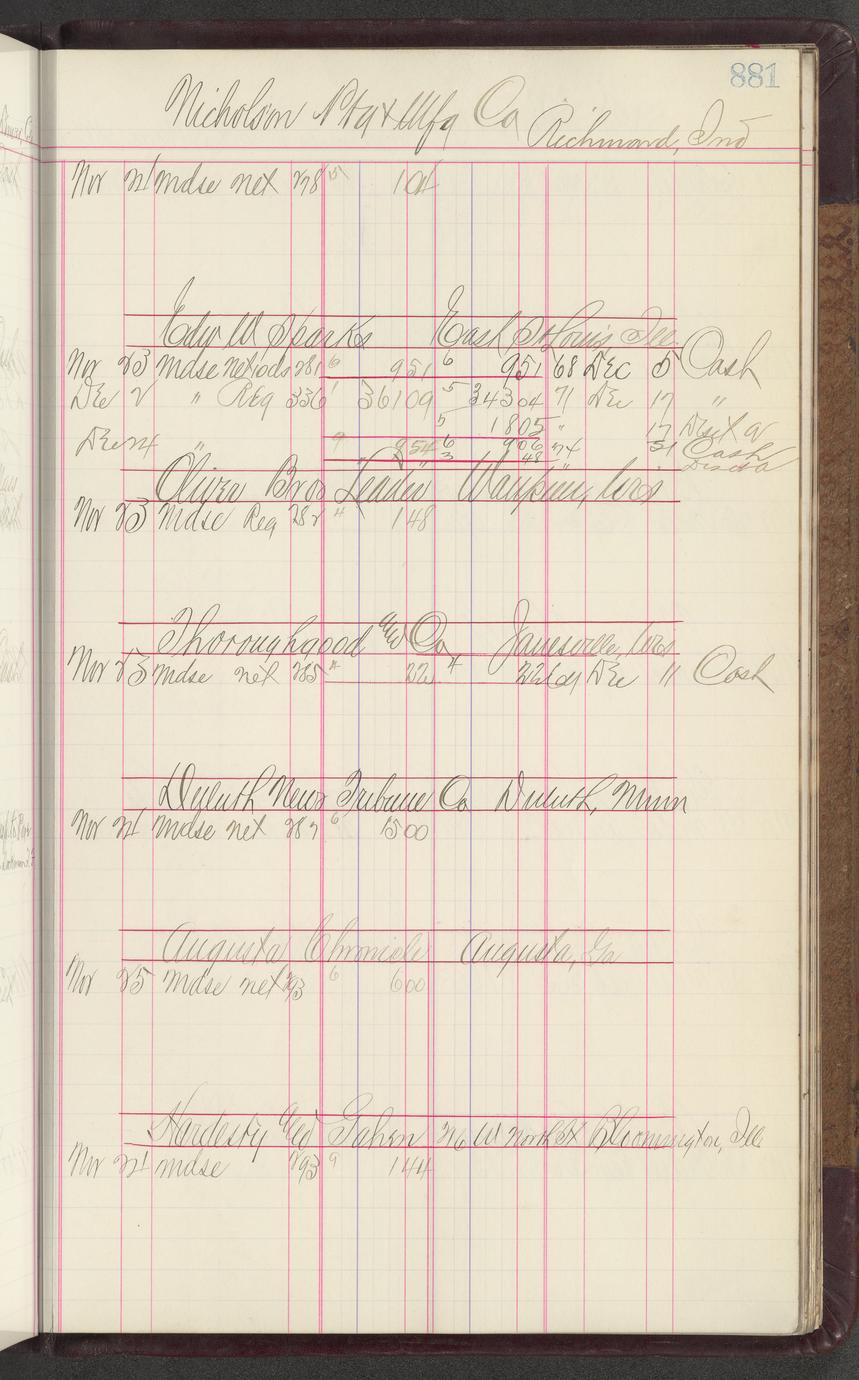 881
Nicholson Ptg & Mfg Co Richmond, Ind
Nov 21 Mdse net 278 104
Edw W Sparks East St Louis Ill
Nov 23 Mdse net 10ds 281 6 951 6 951 68 Dec 5 Cash
Dec 2 " Reg 336 1 36109 5 34304 71 Dec 17 "
5 1805 " 17 Disct
Dec 24 " 9 954 6 906 74 31 Cash
3 48 "
Oliver Bros Leader Waupun, Wis
Nov 23 Mdse Reg 282 4 148
Thoroughgood and Co Janesville, Wis
Nov 23 Mdse net 285 4 226 4 226 69 Dec 11 Cash
Duluth News Tribune Co Duluth, Minn
Nov 21 Mdse net 287 6 1500
Augusta Chronicle Augusta, Ga
Nov 25 Mdse net 293 6 600
Hardesty and Gahen 216 W North St Bloomington, Ill
Nov 21 Mdse 293 9 144